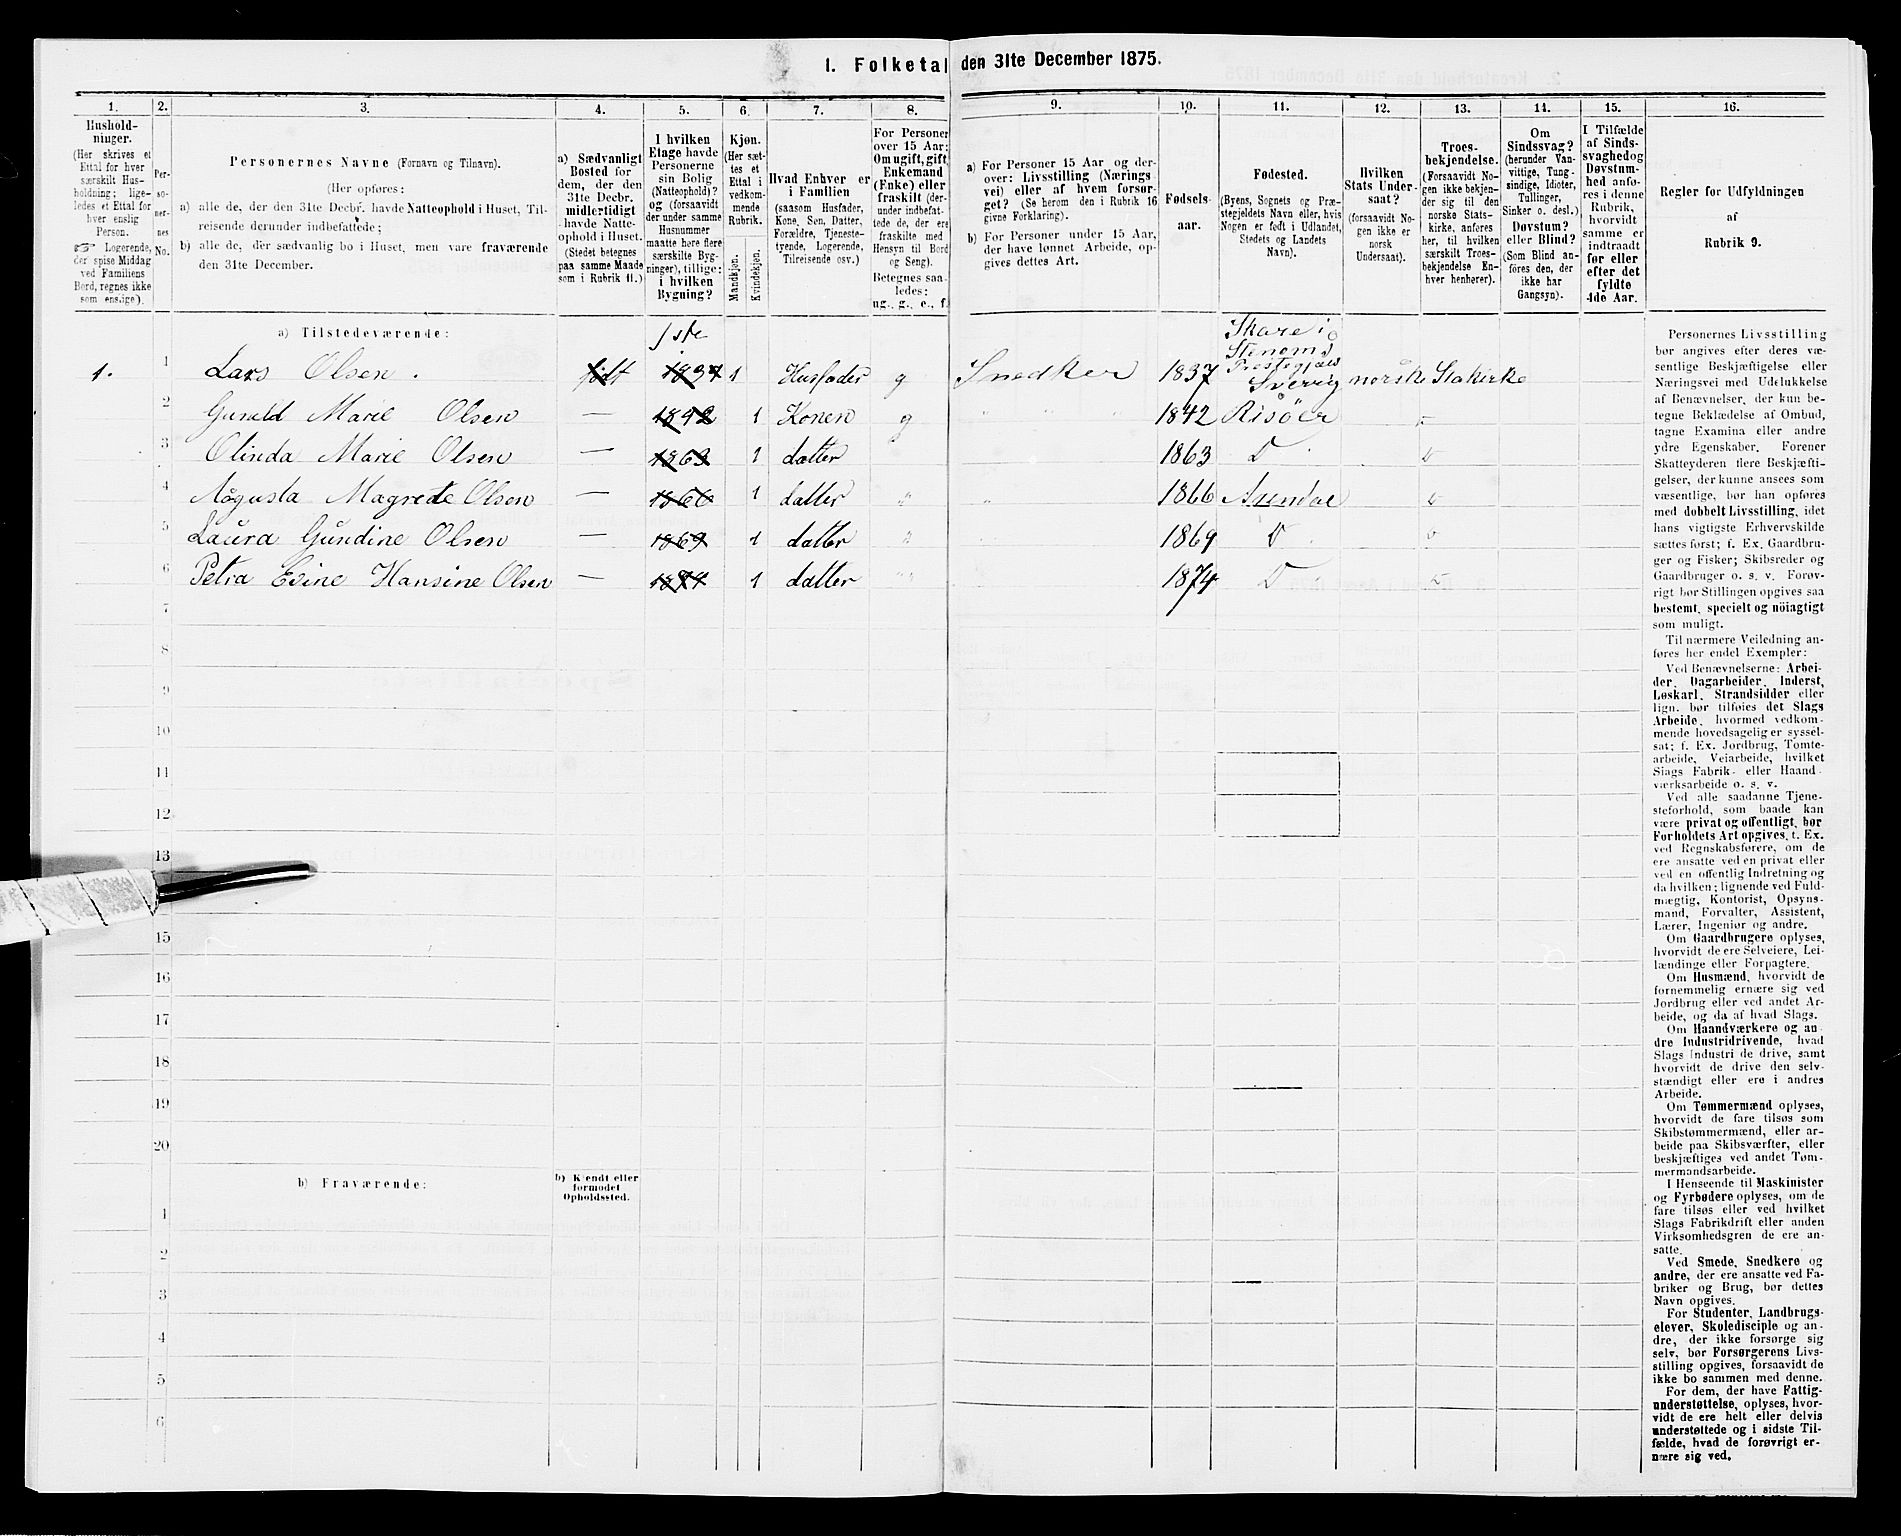 1. Folketal den 31te December 1875.
1. 2. 3. 4. 5. 6. 7. 8. 9. 10. 11. 12. 13. 14. 15. 16.
Husholdninger.
(Her skrives et
Ettal for hver
særskilt Husholdning;
ligeledes et Ettal for
hver enslig
Person.
☞ Logerende,
der spise Middag
ved Familiens
Bord, regnes ikke
som enslige).
Personernes No.
Personernes Navne (Fornavn og Tilnavn).
(Her opføres:
a) alle de, der den 31te Decbr. havde Natteophold i Huset, Tilreisende derunder indbefattede;
b) alle de, der sædvanlig bo i Huset, men vare fraværende
den 31te December.
a) Sædvanligt
Bosted for
dem, der den
31te Decbr.
midlertidigt
havde Natteophold i Huset.
(Stedet betegnes
paa samme Maade
som i Rubrik 11.)
I hvilken
Etage havde
Personerne
sin Bolig
(Natteophold)?
og (forsaavidt
der under samme
Husnummer
maatte høre flere
særskilte Bygninger), tillige:
i hvilken
Bygning?
Kjøn.
(Her sættes et
Ettal i
vedkommende
Rubrik.
Mandkjøn.
Kvindekjøn.
Hvad Enhver er
i Familien
(saasom Husfader,
Kone, Søn, Datter,
Forældre, Tjenestetyende, Logerende,
Tilreisende osv.)
For Personer
over 15 Aar:
Om ugift, gift,
Enkemand
(Enke) eller
fraskilt (derunder indbefattede de, der ere
fraskilte med
Hensyn til Bord
og Seng).
Betegnes saaledes:
ug., g., e., f.
a) For Personer 15 Aar og derover: Livsstilling (Næringsvei) eller af hvem forsørget? (Se herom den i Rubrik 16
givne Forklaring).
b) For Personer under 15 Aar,
der have lønnet Arbeide, opgives dettes Art.
Fødselsaar.
Fødested.
(Byens, Sognets og Præstegjeldets Navn eller, hvis
Nogen er født i Udlandet,
Stedets og Landets
Navn).
Hvilken
Stats Undersaat?
(forsaavidt Nogen ikke er
norsk
Undersaat).
Troesbekjendelse.
(Forsaavidt Nogen ikke bekjender sig til den
norske Statskirke, anføres
her, til hvilken
særskilt Troesbekjendelse Enhver henhører).
Om
Sindssvag?
(herunder Vanvittige, Tungsindige, Idioter,
Tullinger,
Sinker o. desl.)
Døvstum?
eller Blind?
(Som Blind anføres den, der
ikke har
Gangsyn).
I Tilfælde
af Sindssvaghed og
Døvstumhed anføres i denne
Rubrik,
hvorvidt
samme er
indtraadt
før eller
efter det
fyldte
4de Aar.
Regler for Udfyldningen
af
Rubrik 9.
a) Tilstedeværende:
1ste
Skare i
Stenoms
Prestegjæld
1. 1 Lars Olsen. født 1837 1 Husfader g Snedker 1837 Sverig norsk Stakirke
2 Gunild Marie Olsen — 1842 1 Konen g " " " 1842 Risöer "
3 Olinda Marie Olsen — 1863 1 datter 1863 D D
4 Augusta Magrete Olsen — 1866 1 datter " " 1866 Arendal D
5 Laura Gundine Olsen — 1869 1 datter " 1869 D D
6 Petra Evine Hansine Olsen — 1874 1 datter " 1874 D D
7
8
9
10
11
12
13
15
16
17
18
19
20
b) Fraværende:
b) Kjendt eller
formodet
Opholdssted.
1
2
3
4
5
6
Personernes Livsstilling
bør angives efter deres væsentlige Beskjæftigelse eller
Næringsvei med Udelukkelse
af Benævnelser, der kun betegne Beklædelse af Ombud,
tagne Examina eller andre
ydre Egenskaber. Forener
Skatteyderen flere Beskjæftigelser, der kunne ansees som
væsentlige, bør han opføres
med dobbelt Livsstilling, idet
hans vigtigste Erhvervskilde
sættes først; f. Ex. Gaardbruger og Fisker; Skibsreder og
Gaardbruger o. s. v. Forøvrigt bør Stillingen opgives saa
bestemt, specielt og nöiagtigt
som muligt.
Til nærmere Veiledning anføres her endel Exempler:
Ved Benævnelserne: Arbeider, Dagarbeider, Inderst,
Løskarl, Strandsidder eller
lign. bør tilføies det Slags
Arbeide, hvormed vedkommende hovedsagelig er sysselsat; f. Ex. Jordbrug, Tomtearbeide, Veiarbeide, hvilket
Slags Fabrik- eller Haandværksarbeide o. s. v.
Ved alle saadanne Tjenesteforhold, som baade kan
være privat og offentligt, bør
Forholdets Art opgives, t. Ex.
ved Regnskabsførere, om de
ere ansatte ved en privat eller
ved en offentlig Indretning og
da hvilken; lignende ved Fuldmægtig, Kontorist, Opsynsmand, Forvalter, Assistent,
Lærer, Ingeniør og andre.
Om Gaardbrugere oplyses,
hvorvidt de ere Selveiere, Leilændinge eller Forpagtere.
Om Husmænd, hvorvidt de
fornemmelig ernære sig ved
Jordbrug eller ved andet Arbeide, og da af hvad Slags.
Om Haandværkere og andre Industridrivende, hvad
Slags Industri de drive, samt
hvorvidt de drive den selvstændigt eller ere i andres
Arbeide.
Om Tømmermænd oplyses,
hvorvidt de fare tilsøs som
Skibstømmermænd, eller arbeide paa Skibsværfter, eller
beskjæftiges ved andet Tømmermandsarbeide.
I Henseende til Maskinister
og Fyrbødere oplyses, om de
fare tilsøs eller ved hvilket
Slags Fabrikdrift eller anden
Virksomhedsgren de ere ansatte.
Ved Smede, Snedkere og
andre, der ere ansatte ved Fabriker og Brug, bør dettes
Navn opgives.
For Studenter, Landbrugselever, Skoledisciple og andre, der ikke forsørge sig
selv, bør Forsørgerens Livsstilling opgives, forsaavidt de
ikke bo sammen med denne.
For dem, der have Fattigunderstøttelse, oplyses, hvorvidt de ere helt eller delvis
understøttede og i sidste Tilfælde, hvad de forøvrigt ernære sig ved.